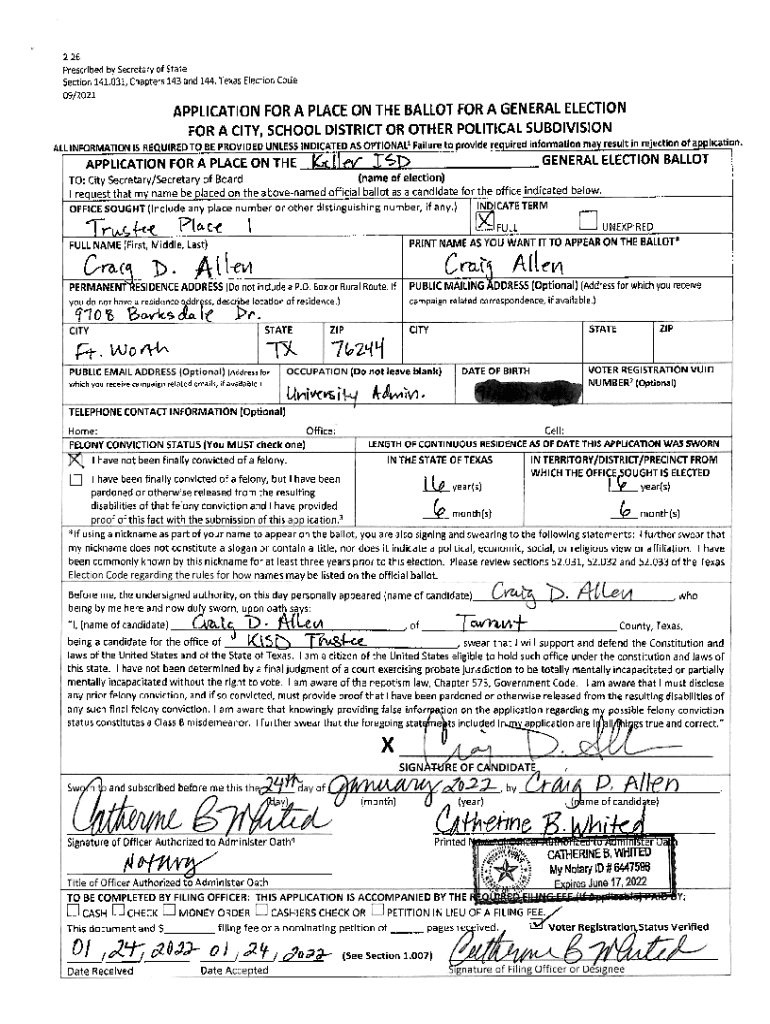 2-26
Prescribed by Secretary of State
Section 141.031, Chapters 143 and 144, Texas Election Code
09/2021
APPLICATION FOR A PLACE ON THE BALLOT FOR A GENERAL ELECTION
FOR A CITY, SCHOOL DISTRICT OR OTHER POLITICAL SUBDIVISION
ALL INFORMATION IS REQUIRED TO BE PROVIDED UNLESS INDICATED AS OPTIONAL¹ Failure to provide required information may result in rejection of application.
APPLICATION FOR A PLACE ON THE Keller ISD GENERAL ELECTION BALLOT
TO: City Secretary/Secretary of Board (name of election)
I request that my name be placed on the above-named official ballot as a candidate for the office indicated below.
OFFICE SOUGHT (Include any place number or other distinguishing number, if any.) INDICATE TERM
Trustee Place 1 X FULL UNEXPIRED
FULL NAME (First, Middle, Last) PRINT NAME AS YOU WANT IT TO APPEAR ON THE BALLOT*
Craig D. Allen Craig Allen
PERMANENT RESIDENCE ADDRESS (Do not include a P.O. Box or Rural Route. If PUBLIC MAILING ADDRESS (Optional) (Address for which you receive
you do not have a residence address, describe location of residence.) campaign related correspondence, if available.)
9708 Barksdale Dr.
CITY STATE ZIP CITY STATE ZIP
Ft. Worth TX 76244
PUBLIC EMAIL ADDRESS (Optional) (Address for OCCUPATION (Do not leave blank) DATE OF BIRTH VOTER REGISTRATION VUID
which you receive campaign related emails, if available.) NUMBER² (Optional)
University Admin.
TELEPHONE CONTACT INFORMATION (Optional)
Home: Office: Cell:
FELONY CONVICTION STATUS (You MUST check one) LENGTH OF CONTINUOUS RESIDENCE AS OF DATE THIS APPLICATION WAS SWORN
X I have not been finally convicted of a felony. IN THE STATE OF TEXAS IN TERRITORY/DISTRICT/PRECINCT FROM
WHICH THE OFFICE SOUGHT IS ELECTED
I have been finally convicted of a felony, but I have been 16 year(s) 16 year(s)
pardoned or otherwise released from the resulting
disabilities of that felony conviction and I have provided 6 month(s) 6 month(s)
proof of this fact with the submission of this application.³
*If using a nickname as part of your name to appear on the ballot, you are also signing and swearing to the following statements: I further swear that
my nickname does not constitute a slogan or contain a title, nor does it indicate a political, economic, social, or religious view or affiliation. I have
been commonly known by this nickname for at least three years prior to this election. Please review sections 52.031, 52.032 and 52.033 of the Texas
Election Code regarding the rules for how names may be listed on the official ballot.
Before me, the undersigned authority, on this day personally appeared (name of candidate) Craig D. Allen, who
being by me here and now duly sworn, upon oath says:
"I, (name of candidate) Craig D. Allen, of Tarrant County, Texas,
being a candidate for the office of KISD Trustee, swear that I will support and defend the Constitution and
laws of the United States and of the State of Texas. I am a citizen of the United States eligible to hold such office under the constitution and laws of
this state. I have not been determined by a final judgment of a court exercising probate jurisdiction to be totally mentally incapacitated or partially
mentally incapacitated without the right to vote. I am aware of the nepotism law, Chapter 573, Government Code. I am aware that I must disclose
any prior felony conviction, and if so convicted, must provide proof that I have been pardoned or otherwise released from the resulting disabilities of
any such final felony conviction. I am aware that knowingly providing false information on the application regarding my possible felony conviction
status constitutes a Class B misdemeanor. I further swear that the foregoing statements included in my application are in all things true and correct."
X Craig D. Allen
SIGNATURE OF CANDIDATE
Sworn to and subscribed before me this the 24th day of January 2022, by Craig D. Allen.
(day) (month) (year) (name of candidate)
Catherine B Whited Catherine B. Whited
Signature of Officer Authorized to Administer Oath⁴ Printed Name of Officer Authorized to Administer Oath
Notary
CATHERINE B. WHITED
My Notary ID # 6447598
Expires June 17, 2022
Title of Officer Authorized to Administer Oath
TO BE COMPLETED BY FILING OFFICER: THIS APPLICATION IS ACCOMPANIED BY THE REQUIRED FILING FEE (If Applicable) PAID BY:
CASH CHECK MONEY ORDER CASHIERS CHECK OR PETITION IN LIEU OF A FILING FEE.
This document and $ filing fee or a nominating petition of pages received. Voter Registration Status Verified
01, 24, 2022 01, 24, 2022 (See Section 1.007) Catherine B Whited
Date Received Date Accepted Signature of Filing Officer or Designee